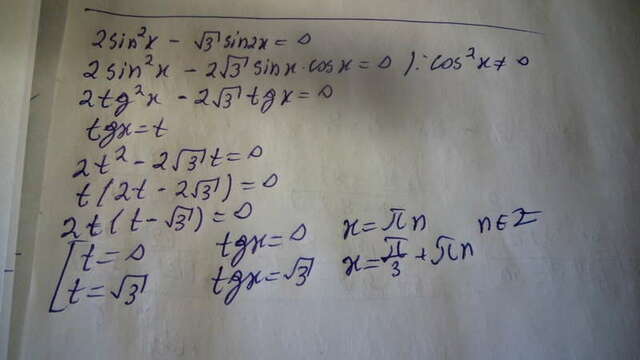 2sin²x - √3 sin2x = 0
2sin²x - 2√3 sinx·cosx = 0 ) : cos²x ≠ 0
2tg²x - 2√3 tgx = 0
tgx = t
2t² - 2√3 t = 0
t(2t - 2√3) = 0
2t(t - √3) = 0
[ t = 0 tgx = 0 x = πn n∈Z
t = √3 tgx = √3 x = π/3 + πn